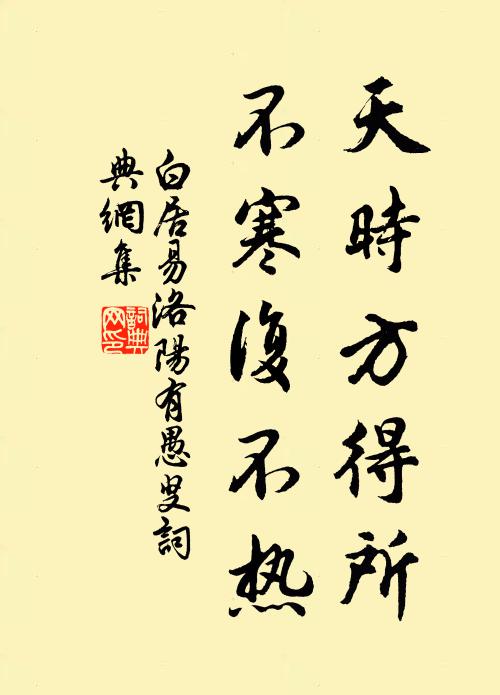 天時方得所
不寒復不热
白居易洛陽有愚叟詞
典網集
詞典网印